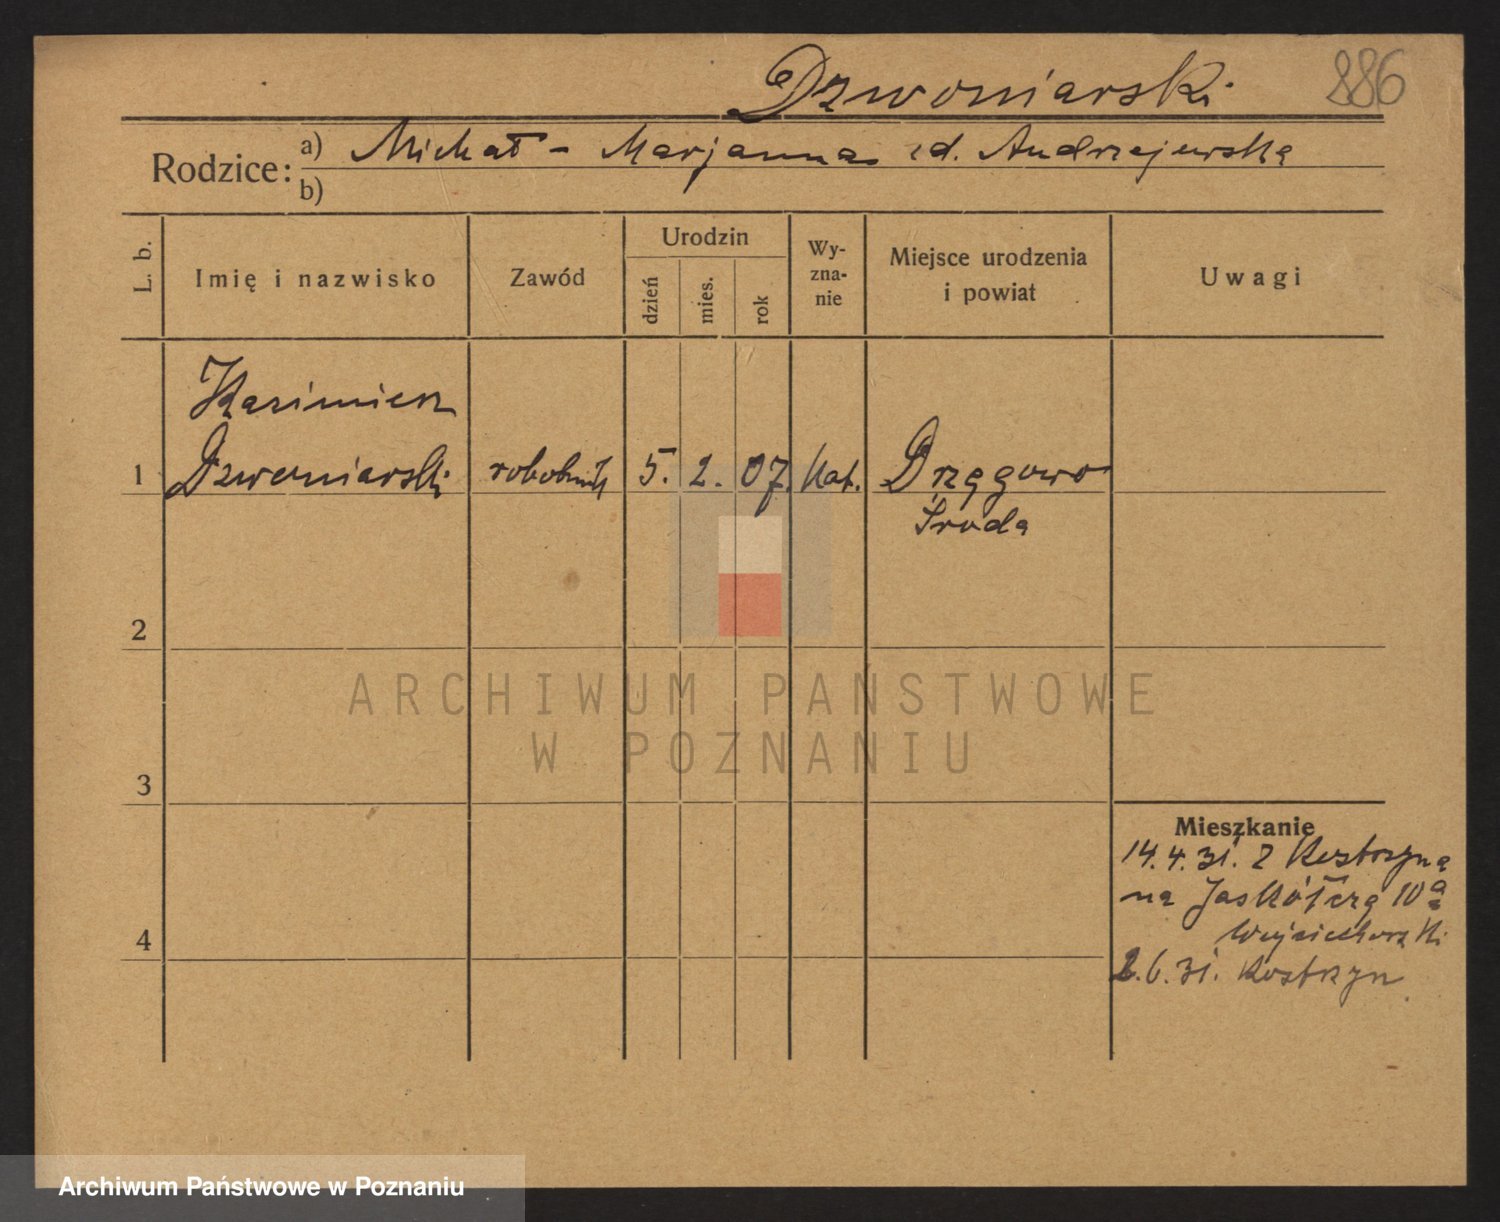 Dzwoniarski 886
Rodzice: a) Michał - Marjanna zd. Andrzejewska
b)
L. b. Imię i nazwisko Zawód Urodzin dzień mies. rok Wy-zna-nie Miejsce urodzenia i powiat Uwagi
Kazimierz
1 Dzwoniarski robotnik 5. 2. 07. kat. Drzęgowo
Środa
2
ARCHIWUM PAŃSTWOWE
W POZNANIU
3
Mieszkanie
14.4.31. Z Kostrzyna
na Jaskółczą 10a
Wojciechowski
2.6.31. Kostrzyn
4
Archiwum Państwowe w Poznaniu